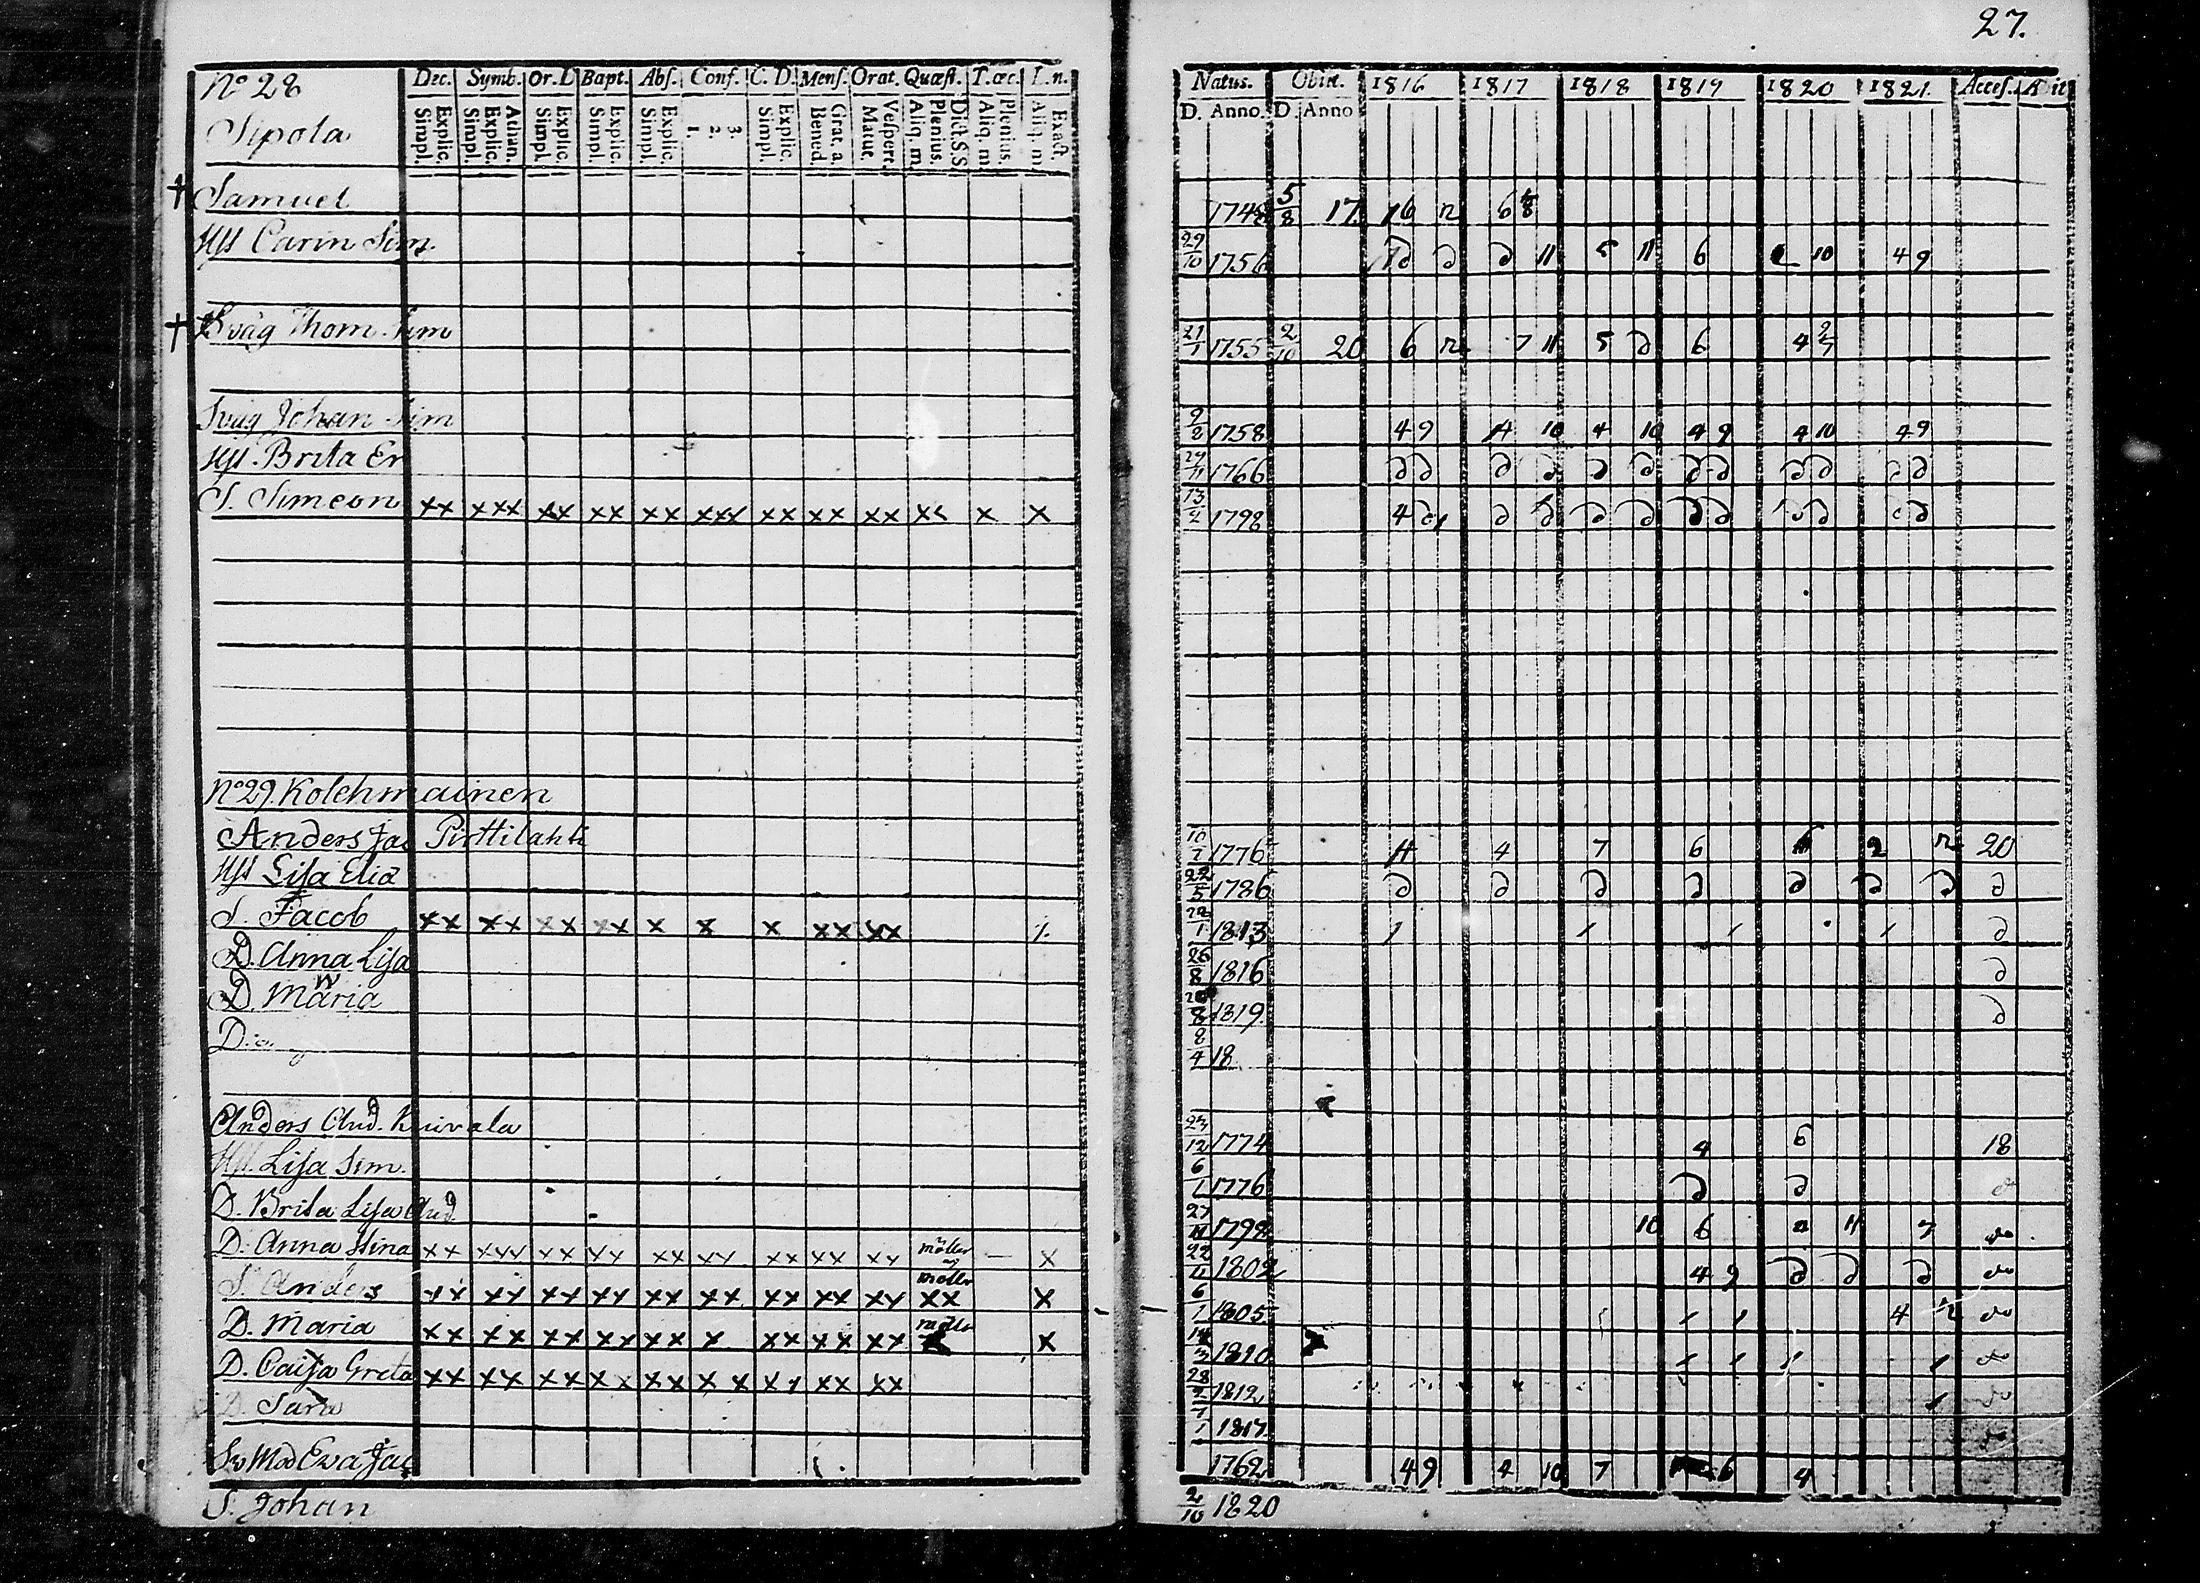 27.
No 28 Dec. Symb. Or. D Bapt. Abs. Conf. C. D. Mens. Orat. Quæst. T. œc. I. n.
Sipola
Simpl. Explic. Simpl. Explic. Athan. Simpl. Explic. Simpl. Explic. Simpl. Explic. 1. 2. 3. Simpl. Explic. Bened. Grat. a. Matut. Vespert. Aliq. m. Plenius. Dict. S.S. Aliq. m. Plenius. Aliq. m. Exact.
Natus. Obiit. 1816 1817 1818 1819 1820 1821. Acces.
D. Anno. D. Anno
† Samuel 1748 5/8 17. 16 12 6
Hst Carin Sim 29/10 1756 11 5 11 6 10 4 9
† Svåg Thom. Sim 21/1 1755 2/10 20 6 12 7 11 5 6 4
Svåg Johan Sim 9/8 1758 4 9 4 10 4 10 4 9 4 10 4 9
Hst. Brita Er 29/11 1766
S. Simeon xx xxx xx xx xx xxx xx xx xx xx x x 13/2 1798 4
No 29. Kolehmainen
Anders Jac Pirttilahti 10/7 1776 4 4 7 6 6 2 12 20
Hst Lisa Elia 22/5 1786
S. Jacob xx xx xx xx x x x xx xx 1813
D. Anna Lisa 26/8 1816
D. Maria 1819
D. 8/4 18
Anders And. Knivala 23/12 1774 4 6 18
Hst. Lisa Sim. 6/1 1776
D. Brita Lisa And. 27/11 1798 10 6 11 7 do
D. Anna Stina xx xxx xx xx xx xx xx xx xx — x 22 1802 4 9 do
S. Anders xx xx xx xx xx xx xx xx xx xx x 6/1 1805 4 12 do
D. Maria xx xx xx xx xx x xx xx xx x 1810 do
D. Caisa Greta xx xx xx xx xx xx xx xx xx 28/2 1812 do
D. Sara 7/1 1817
Sv Mod Eva Jac 1762 4 9 4 10 7 6 4
S. Johan 2/10 1820